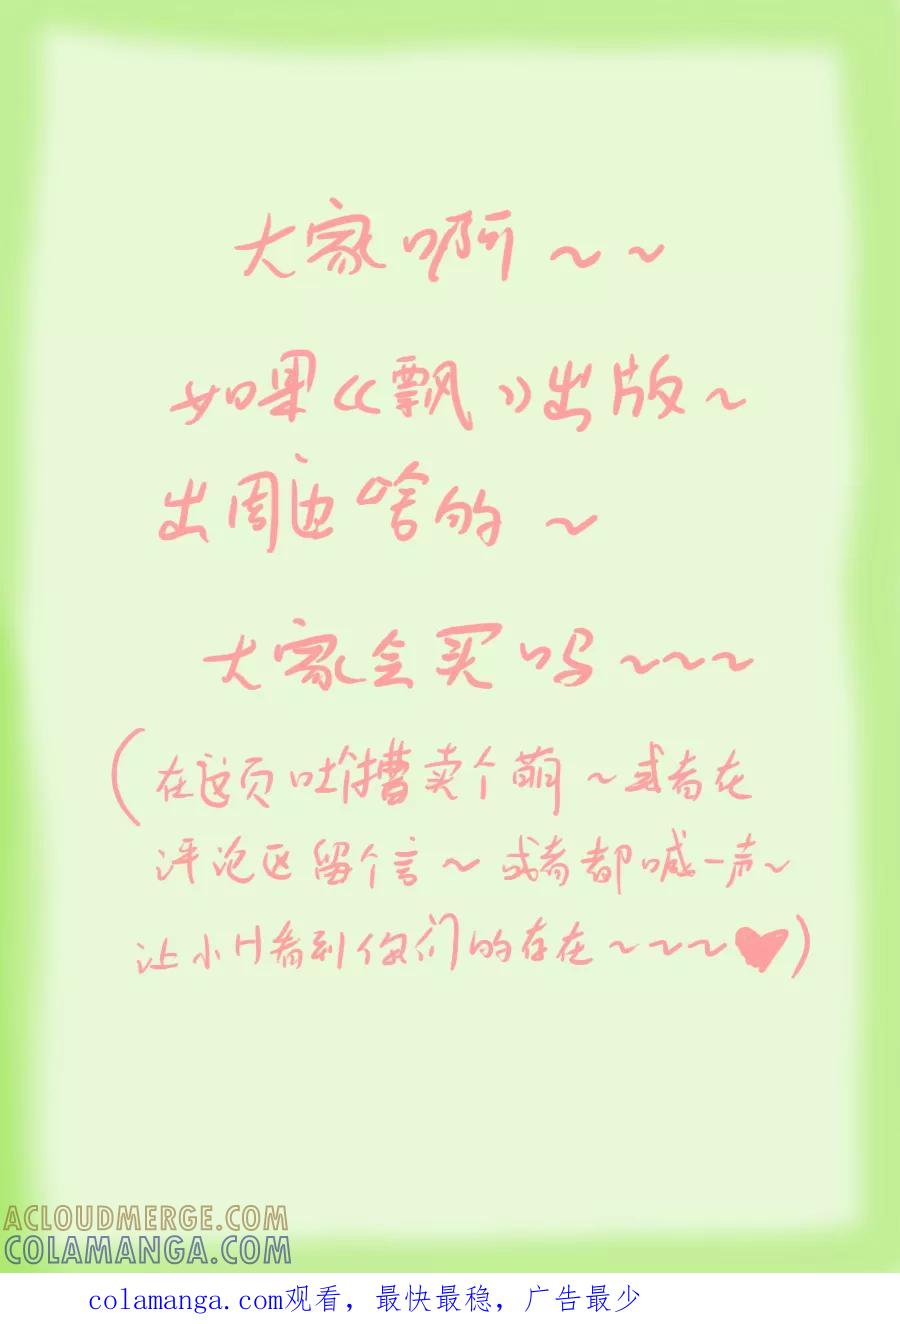 大家啊~~
如果《飘》出版~
出周边啥的~
大家会买吗~~~
(在这页吐个槽卖个萌~或者在
评论区留个言~或者都喊一声~
让小H看到你们的存在~~~♥)
ACLOUDMERGE.COM
COLAMANGA.COM
colamanga.com观看，最快最稳，广告最少